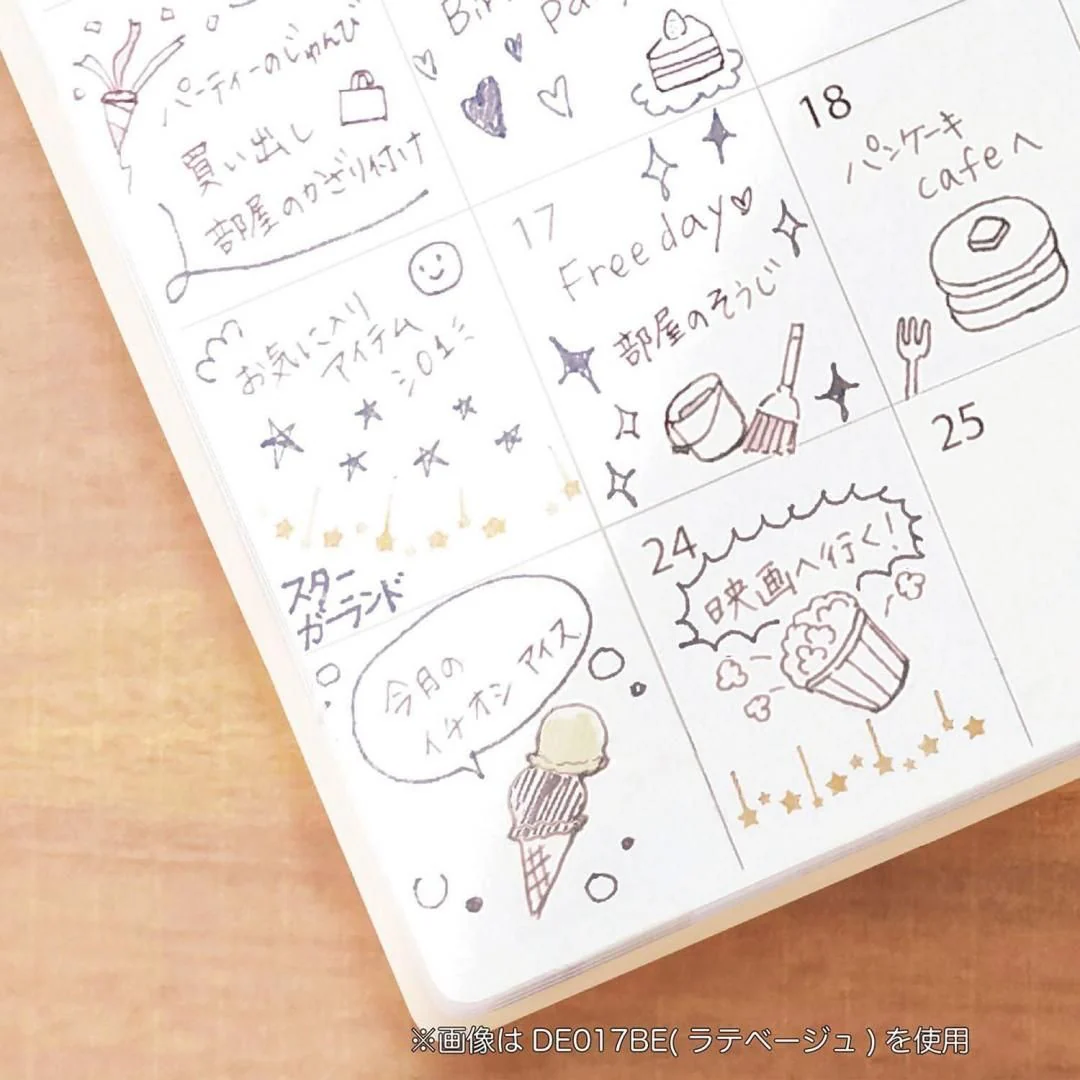 パーティーのじゅんび
買い出し
部屋のかざり付け
お気に入り
アイテム
01
スター
ガーランド
17
Free day
部屋のそうじ
18
パンケーキ
cafeへ
今月の
イチオシ アイス
24
映画へ行く!
25
※画像は DE017BE( ラテベージュ ) を使用